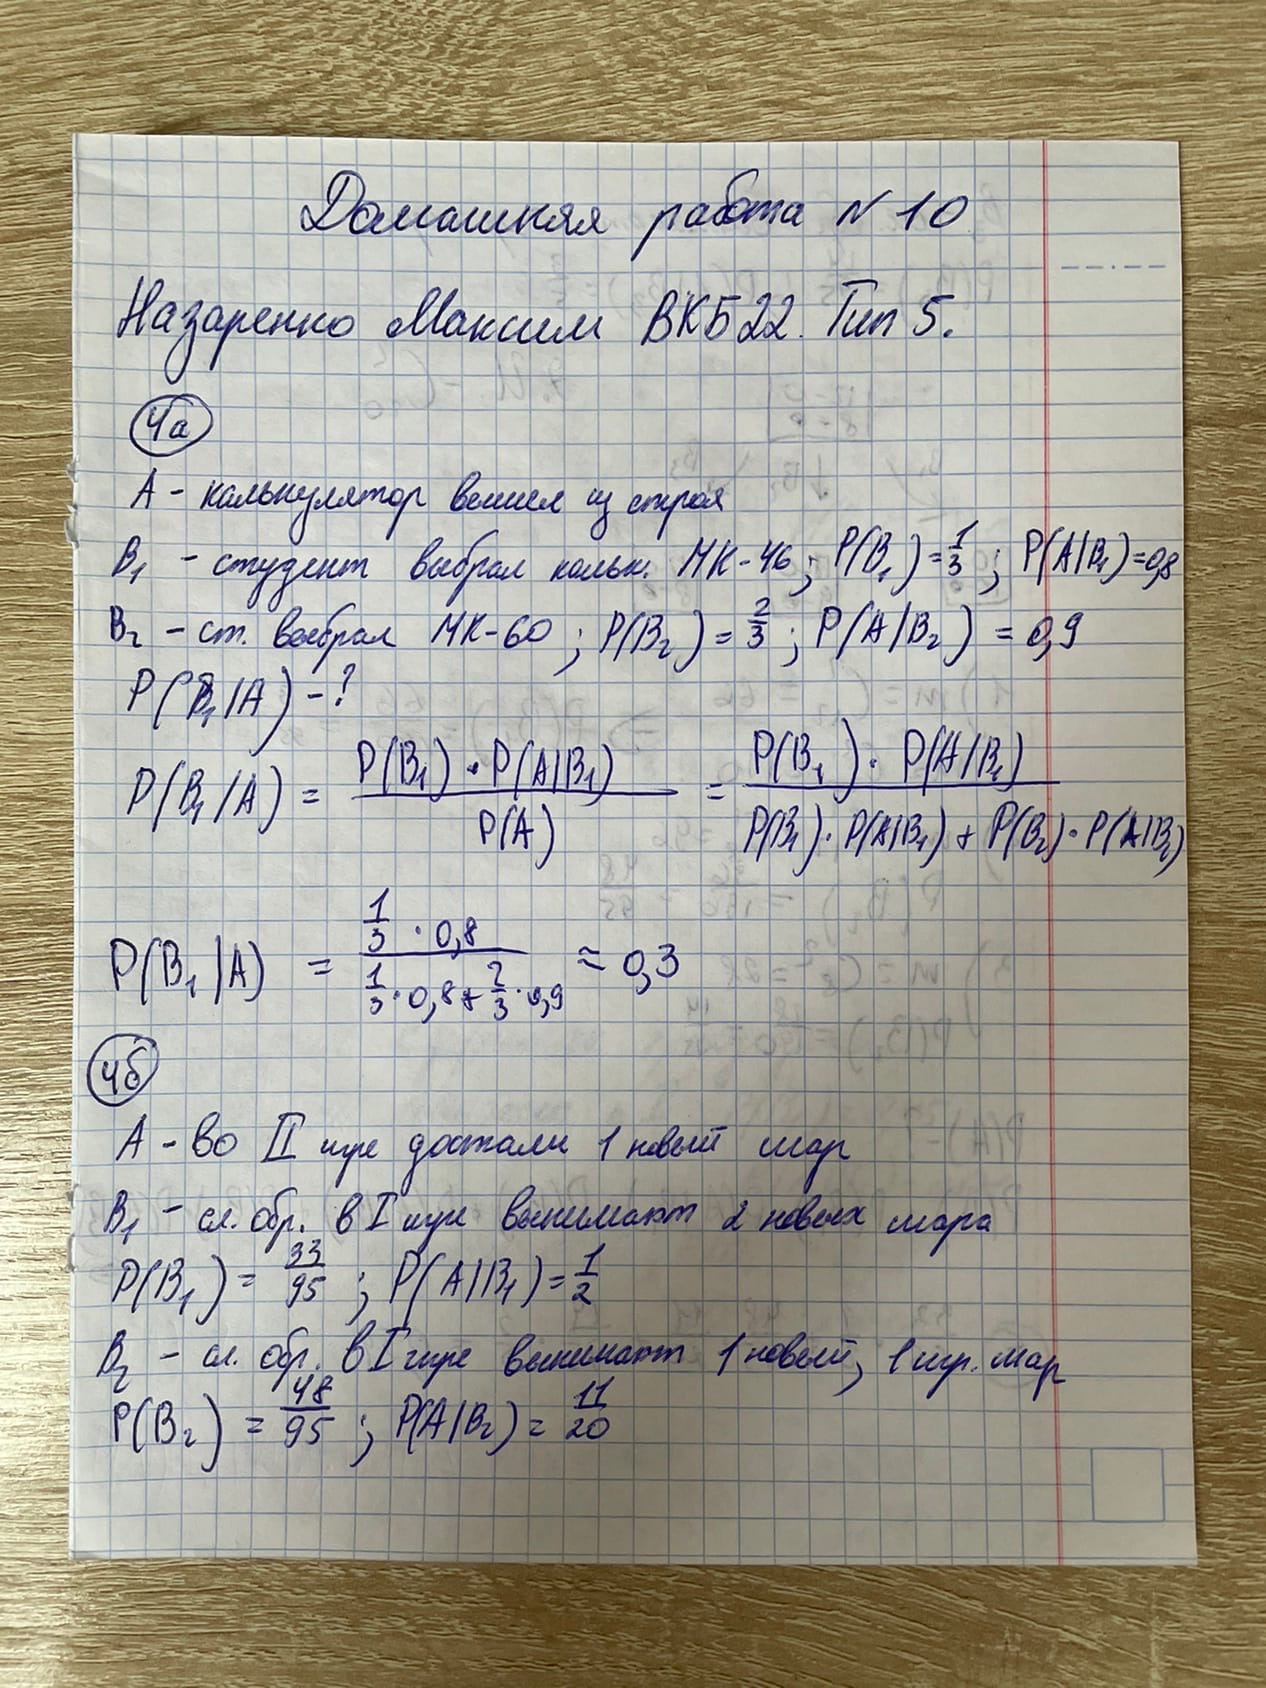 Домашняя работа N 10
Назаренко Максим ВКБ22. Тип 5.
4а
A - калькулятор вышел из строя
B₁ - студент выбрал кальк. МК-46; P(B₁)=1/3; P(A|B₁)=0,8
B₂ - ст. выбрал МК-60; P(B₂)=2/3; P(A|B₂) = 0,9
P(B₁/A) - ?
P(B₁/A) = P(B₁)·P(A|B₁) / P(A) = P(B₁)·P(A/B₁) / P(B₁)·P(A|B₁) + P(B₂)·P(A|B₂)
P(B₁|A) = 1/3 · 0,8 / 1/3 · 0,8 + 2/3 · 0,9 ≈ 0,3
4б
A - во II игре достали 1 новый шар
B₁ - сл. обр. в I игре вынимают 2 новых шара
P(B₁) = 33/95; P(A|B₁) = 1/2
B₂ - сл. обр. в I игре вынимают 1 новый, 1 игр. шар
P(B₂) = 48/95; P(A|B₂) = 11/20